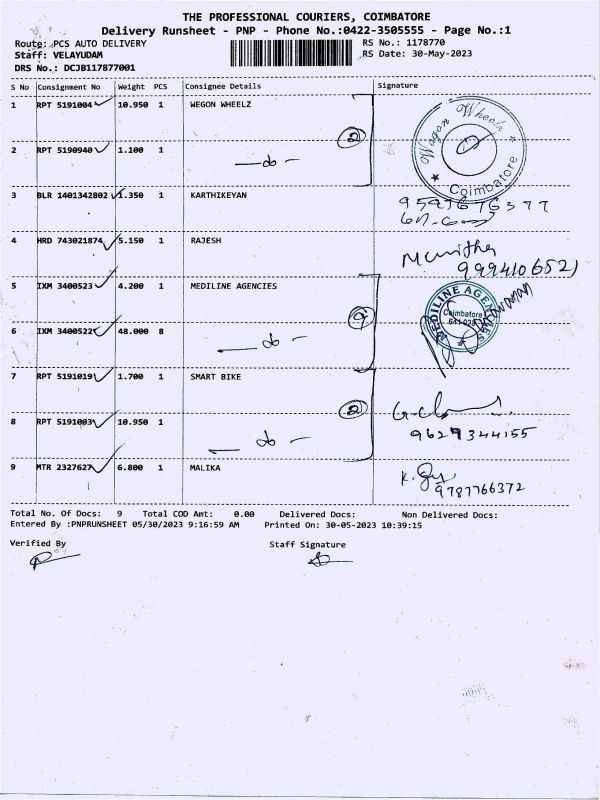 THE PROFESSIONAL COURIERS, COIMBATORE
Delivery Runsheet - PNP - Phone No.:0422-3505555 - Page No.:1
Route: PCS AUTO DELIVERY
RS No.: 1178770
Staff: VELAYUDAM
RS Date: 30-May-2023
DRS No.: DCJB117877001
S No Consignment No Weight PCS Consignee Details Signature
1 RPT 5191004 10.950 1 WEGON WHEELZ
Wagon Wheelz
Coimbatore
2
2 RPT 5190940 1.100 1
— do —
3 BLR 1401342802 1.350 1 KARTHIKEYAN
4 HRD 743021874 5.150 1 RAJESH
9994106521
5 IXM 3400523 4.200 1 MEDILINE AGENCIES
MEDILINE AGENCIES
Coimbatore
6 IXM 3400522 48.000 8
— do —
7 RPT 5191019 1.700 1 SMART BIKE
2
8 RPT 5191003 10.950 1
— do —
9629344155
9 MTR 2327627 6.800 1 MALIKA
9787766372
Total No. Of Docs: 9 Total COD Amt: 0.00 Delivered Docs: Non Delivered Docs:
Entered By :PNPRUNSHEET 05/30/2023 9:16:59 AM Printed On: 30-05-2023 10:39:15
Verified By
Staff Signature